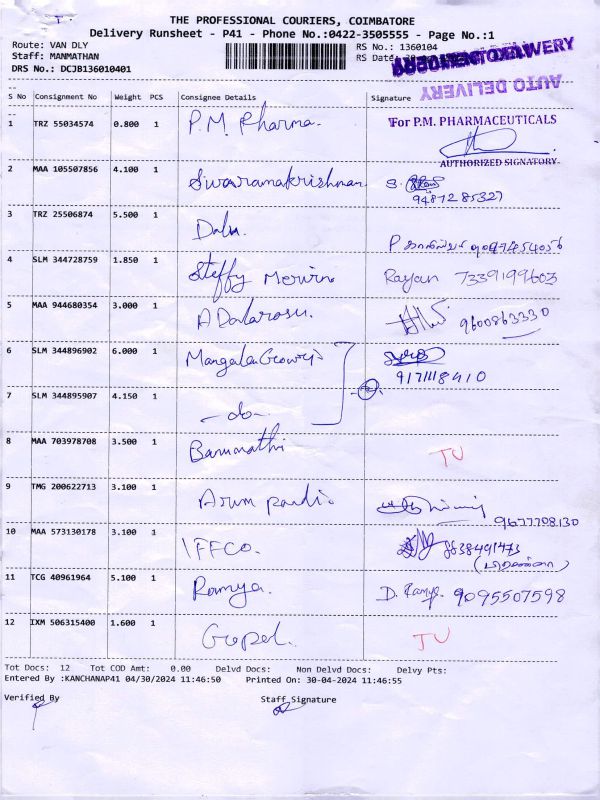 THE PROFESSIONAL COURIERS, COIMBATORE
Delivery Runsheet - P41 - Phone No.:0422-3505555 - Page No.:1
Route: VAN DLY RS No.: 1360104
Staff: MANMATHAN RS Date:
DRS No.: DCJB136010401
AUTO DELIVERY
S No Consignment No Weight PCS Consignee Details Signature
1 TRZ 55034574 0.800 1 P.M. Pharma. For P.M. PHARMACEUTICALS
AUTHORIZED SIGNATORY.
2 MAA 105507856 4.100 1 Sivaramakrishnan S.
9487285327
3 TRZ 25506874 5.500 1
4 SLM 344728759 1.850 1 Steffy Merwin Rayan 7339199603
5 MAA 944680354 3.000 1 9600863330
6 SLM 344896902 6.000 1
9171118410
7 SLM 344895907 4.150 1 -do-
8 MAA 703978708 3.500 1 Banumathi
9 TMG 200622713 3.100 1 Arum pandi.
9677798130
10 MAA 573130178 3.100 1 IFFCO.
11 TCG 40961964 5.100 1 Ramya. D. Ramya. 9095507598
12 IXM 506315400 1.600 1 Gopal.
Tot Docs: 12 Tot COD Amt: 0.00 Delvd Docs: Non Delvd Docs: Delvy Pts:
Entered By :KANCHANAP41 04/30/2024 11:46:50 Printed On: 30-04-2024 11:46:55
Verified By Staff Signature